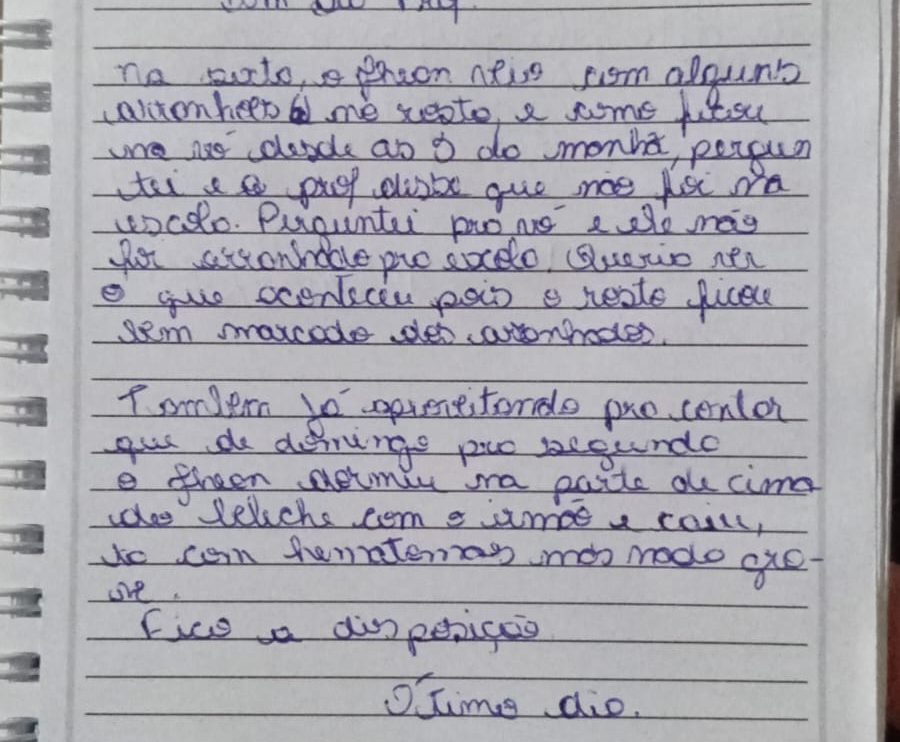 Na sexta, o Jheon veio com alguns
arranhões no rosto, e como ficou
na vó desde as 5 da manhã, pergun
tei e a prof disse que não foi na
escola. Perguntei pra vó e ele não
foi arranhado pra escola. Queria ver
o que aconteceu pois o rosto ficou
bem marcado dos arranhões.
Também já aproveitando pra contar
que de domingo pra segunda
o Jheon dormiu na parte de cima
do beliche com o irmão e caiu,
tá com hematomas mas nada gra-
ve.
Fico a disposição
Ótimo dia.